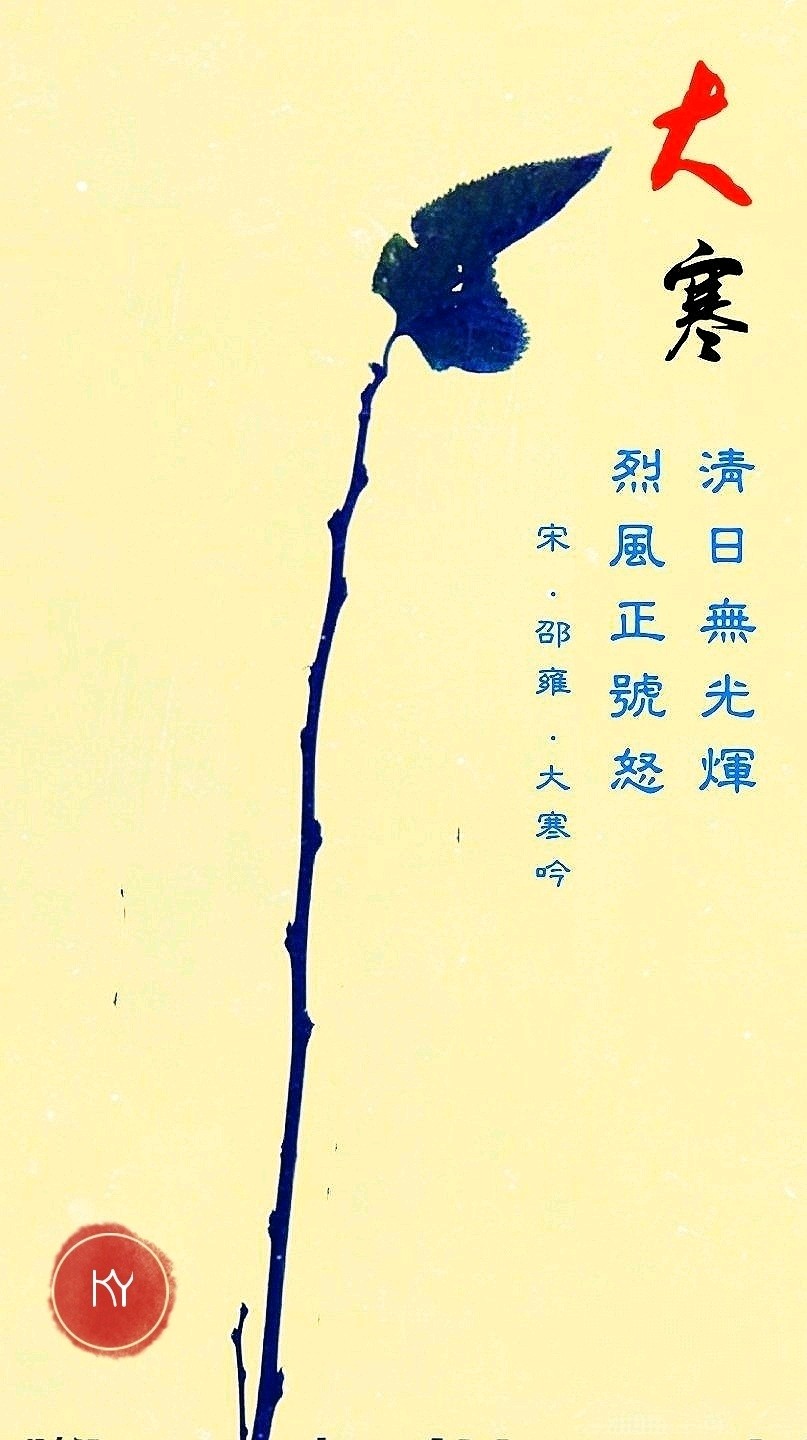 大寒
清日無光輝
烈風正號怒
宋·邵雍·大寒吟
KY